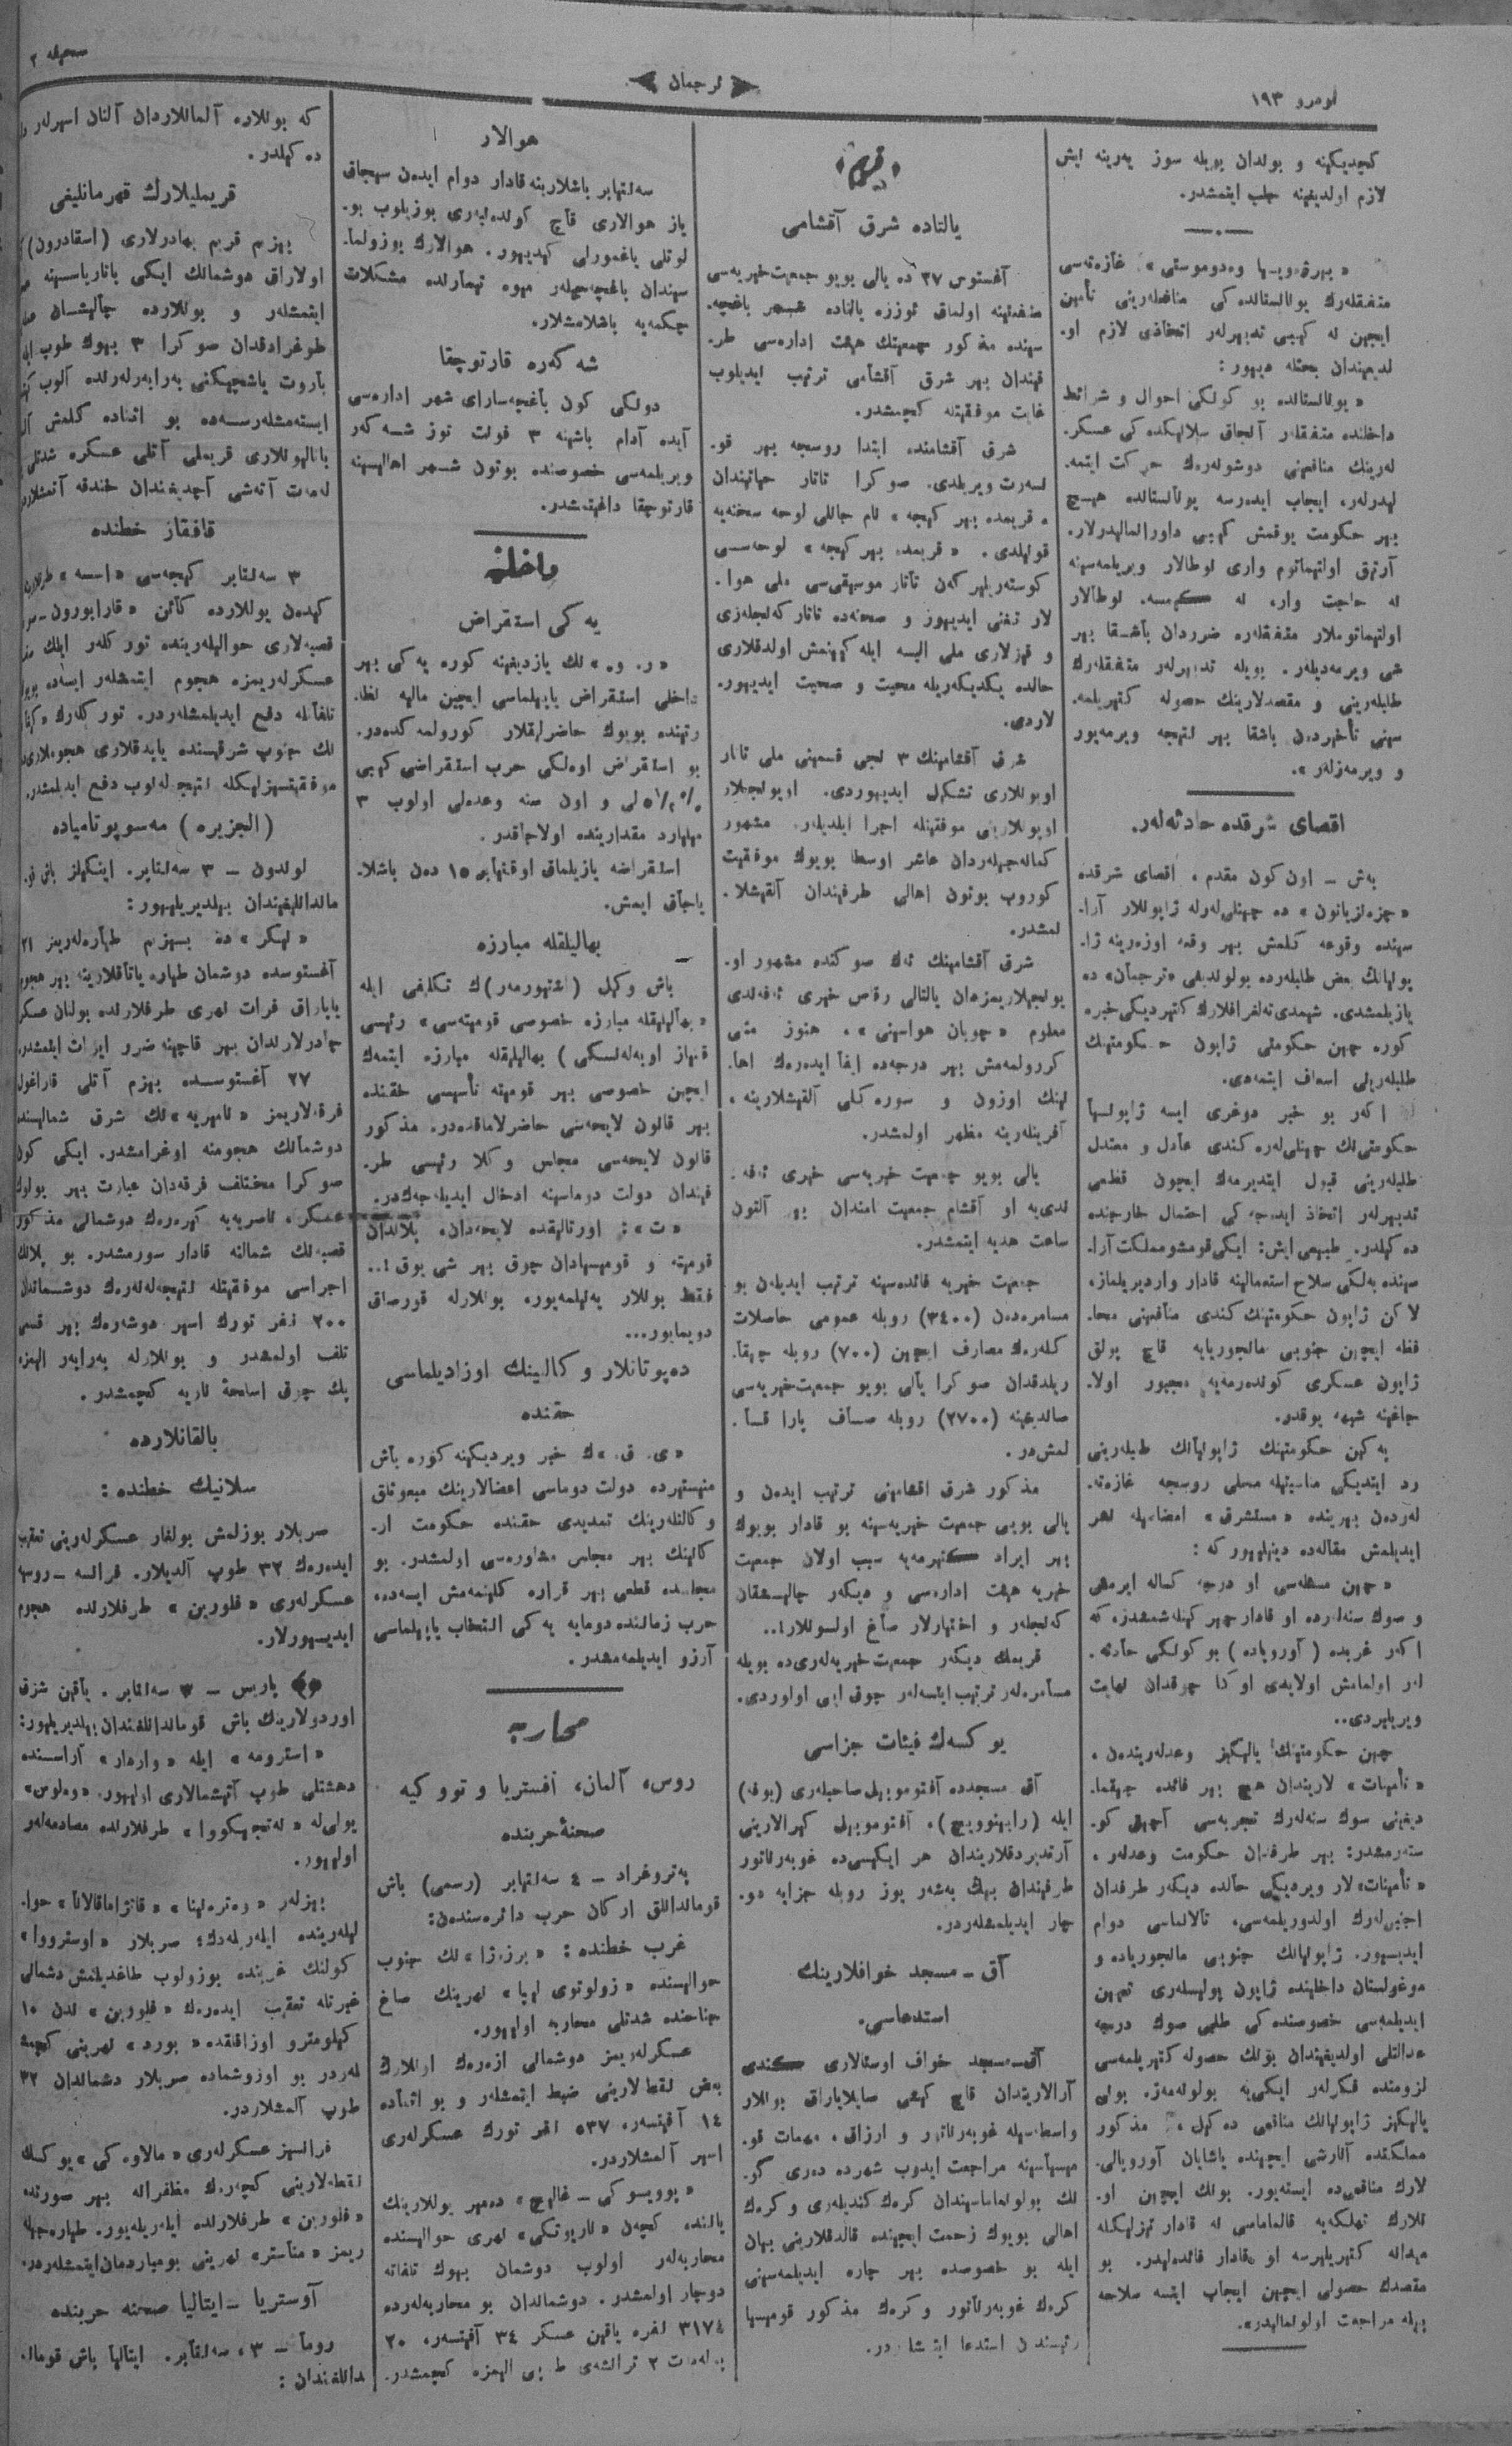 نومرو ١٩٣
ترجمان
صحیفه ٢
کچدیکینه و بولدان بویله سوز یه‌رینه ایش
لازم اولدیغینه جلب ایتمشدر.
متفقلەرك یونانستانده‌کی منافعلەرینی تأمین
ایچین نه کیبی تدبیرلەر اتخاذی لازم او.
لدیغندان بحثله دییور :
« یونانستانده بو کونکی احوال و شرائط
داخلنده متفقلەر آنجاق سلانیکده‌کی عسکر.
لەرینك منافعینی دوشونەرەك حرکت ایتمه.
لیدرلەر، ایجاب ایدەرسه یونانستانده هیچ
بیر حکومت یوقمش کیبی داورانمالیدرلار.
آرتیق اولتیماتوم واری نوطالار ویریلمەسینه
نه حاجت وار، نه کیمسه. نوطالار
اولتیماتوملار متفقلەره ضرردان باشقا بیر
شی ویرمەدیلەر. بویله تدبیرلەر متفقلەرك
طلبلەرینی و مقصدلارینك حصوله کتیریلمه.
سینی تأخیردن باشقا بیر نتیجه ویرمەیور
و ویرمەزلەر ».
اقصای شرقده حادثه‌لەر.
بەش ــ اون کون مقدم، اقصای شرقده
سینده وقوعه کلمش بیر وقعه اوزەرینه ژا.
پونیانك بعض طلبلەرده بولوندیغی «ترجمان» ده
یازیلمشدی. شیمدی تەلغرافلارك کتیردیکی خبره
کوره چین حکومتی ژاپون حکومتینك
طلبلەرینی اسعاف ایتمەدی.
اکەر بو خبر دوغری ایسه ژاپونیا
حکومتی‌نك چینلی‌لەره کندی عادل و معتدل
طلبلەرینی قبول ایتدیرمەك ایچون قطعی
تدبیرلەر اتخاذ ایدەجەکی احتمال خارجنده
ده‌کلدر. طبیعی ایش: ایکی قومشو مملکت آرا.
سینده بەلکی سلاح استعمالینه قادار واردیریلماز،
لاکن ژاپون حکومتینك کندی منافعینی محا.
فظه ایچین جنوبی مانجوریایه قاچ یولق
ژاپون عسکری کوندەرمەیه مجبور اولا.
جاغینه شبهه یوقدر.
یه‌کین حکومتینك ژاپونیانك طلبلەرینی
رد ایتدیکی مناسبتیله محلی روسجه غازەته.
لەردەن بیرینده «مستشرق» امضاسیله نشر
ایدیلمش مقاله‌ده دینیلیور که :
« چین مسئله‌سی او درجه کماله ایرمش
و صوك سنه‌لرده او قادار چیرکینلەشمشدر، که
اکەر غربده ( آوروپاده ) بو کونکی حادثه.
لەر اولمامش اولایدی اوکا چوقدان نهایت
ویریلیردی..
چین حکومتینك یالیکیز وعدلەریندەن،
« تأمینات » لاریندان هیچ بیر فائده چیقما.
دیغینی سوك سنه‌لەرك تجربه‌سی آچیق کو.
ستەرمشدر: بیر طرفدان حکومت وعدلەر،
« تأمینات» لار ویردیکی حالده دیکەر طرفدان
اجنبی‌لەرك اولدوریلمەسی، تالانماسی دوام
ایدییور. ژاپونیانك جنوبی مانجوریاده و
موغولستان داخلینده ژاپون پولیسلەری تعیین
ایدیلمەسی خصوصنده‌کی طلبی صوك درجه
عدالتلی اولدیغیندان بونك حصوله کتیریلمەسی
لزومنده فکرلەر ایکی‌یه بولونەمەز. بونی
یالیکیز ژاپونیانك منافعی ده‌کیل، مذکور
مملکتده آنارشی ایچینده یاشایان آوروپالی.
لارك منافعی‌ده ایستەیور. بونك ایچین او.
نلارك تهلکەیه قالماماسی نه قادار تیزلیکله
میدانه کتیریلیرسه او قادار فائده‌لیدر. بو
مقصدك حصولی ایچین ایجاب ایتسه سلاحه
بیله مراجعت اولونمالیدر».
قریم
یالتاده شرق آقشامی
آغستوس ٢٧ ده یالی بویو جمعیت‌خیریه‌سی
منفعتینه اولماق ئوزره یالتاده شهر باغچه.
سینده مذکور جمعیتك هیئت اداره‌سی طر.
فیندان بیر شرق آقشامی ترتیب ایدیلوب
غایت موفقیتله کچمشدر.
شرق آقشامنده ابتدا روسجه بیر قو.
نسەرت ویریلدی. صوکرا تاتار حیاتیندان
« قریمده بیر کیجه » نام جانلی لوحه سحنه‌یه
قونیلدی. « قریمده بیر کیجه » لوحه‌سی
کوستەریلیرکەن تاتار موسیقی‌سی ملی هوا.
لار تغنی ایدییوز و صحنه‌ده تاتار کەنجلەری
و قیزلاری ملی البسه ایله کیینمش اولدقلاری
حالده یکدیکەریله محبت و صحبت ایدییور.
لاردی.
شرق آقشامینك ٣ نجی قسمینی ملی تاتار
اویونلاری تشکیل ایدییوردی. اویونجیلار
اویونلارینی موفقیتله اجرا ایلدیلەر. مشهور
کمانه‌چیلەردان عاشر اوسطا بویوك موفقیت
کوروب بوتون اهالی طرفیندان آلقیشلا.
نمشدر.
شرق آقشامینك ئەك صوکنده مشهور او.
یونجیلاریمزدان یالتالی رقاص خیری ئەفەندی
معلوم «چوبان هواسینی»، هنوز مثلی
کورولمەمش بیر درجه‌ده ایفا ایدەرەك اها.
لینك اوزون و سورەکلی آلقیشلارینه،
آفرینلەرینه مظهر اولمشدر.
یالی بویو جمعیت خیریه‌سی خیری ئەفه.
ندی‌یه او آقشام جمعیت نامندان بیر آلتون
ساعت هدیه ایتمشدر.
جمعیت خیریه فائده‌سینه ترتیب ایدیلەن بو
مسامره‌دەن (٣٤٠٠) روبله عمومی حاصلات
کلەرەك مصارف ایچین (٧٠٠) روبله چیقا.
ریلدقدان صوکرا یالی بویو جمعیت‌خیریه‌سی
صاندیغینه (٢٧٠٠) روبله صاف پارا قا.
لمش‌در.
مذکور شرق اقشامینی ترتیب ایدەن و
یالی بویی جمعیت خیریه‌سینه بو قادار بویوك
بیر ایراد کتیرمەیه سبب اولان جمعیت
خیریه هیئت اداره‌سی و دیکەر چالیشقان
کەنجلەر و اختیارلار صاغ اولسونلار!..
قریمك دیکەر جمعیت خیریه‌لەری‌ده بویله
مسامره‌لەر ترتیب ایتسەلەر چوق ایی اولوردی.
یوکسەك فیئات جزاسی
آق مسجدده آفتوموبیل صاحبلەری (بوفه)
ایله (رابینوویچ)، آفتوموبیل کیرالارینی
آرتدیردقلاریندان هر ایکیسی‌ده غوبەرناتور
طرفیندان بیڭ بەشەر یوز روبله جزایه دو.
چار ایدیلمشلەردر.
آق ــ مسجد خوافلارینك
استدعاسی.
آق‌ــ‌مسجد خواف اوستالاری کندی
آرالاریندان قاچ کیشی صایلایاراق بونلار
واسطه‌سیله غوبەرناتور و ارزاق، مهمات قو.
میسیاسینه مراجعت ایدوب شهرده دەری کو.
نك بولونماماسیندان کرەك کندیلەری و کرەك
اهالی بویوك زحمت ایچینده قالدقلارینی بیان
ایله بو خصوصده بیر چاره ایدیلمەسینی
کرەك غوبەرناتور و کرەك مذکور قومیسیا
رئیسندن استدعا ایتمشلردر.
هوالار
سه‌نتیابر باشلارینه قادار دوام ایدەن سیجاق
یاز هوالاری قاچ کوندەنبەری بوزیلوب بو.
لوتلی یاغمورلی کیدییور. هوالارك بوزولما.
سیندان باغچه‌جیلەر میوه تیمارنده مشکلات
چکمەیه باشلامشلار.
شەکەره قارتوچقا
دونکی کون باغچه‌سارای شهر اداره‌سی
آیده آدام باشینه ٣ فونت توز شەکەر
ویریلمەسی خصوصنده بوتون شهر اهالیسینه
قارتوچقا داغیتمشدر.
داخلیه
یەکی استقراض
«ر. و.» نك یازدیغینه کوره یەکی بیر
داخلی استقراض یاپیلماسی ایچین مالیه نظا.
رتینده بویوك حاضرلیقلار کورولمەکدەدر.
بو استقراض اوەلکی حرب استقراضی کیبی
٥١/٢ ٪ لی و اون سنه وعدەلی اولوب ٣
میلیارد مقدارینده اولاجاقدر.
استقراضه یازیلماق اوقتیابر ١٥ دەن باشلا.
یاجاق ایمش.
بهالیلقله مبارزه
باش وکیل (اشتیورمەر)ك تکلیفی ایله
«بهالیلیقله مبارزه خصوصی قومیته‌سی» رئیسی
قنیاز اوبەلەنسکی ) بهالیلیقله مبارزه ایتمەك
ایچین خصوصی بیر قومیته تأسیسی حقنده
بیر قانون لایحه‌سی حاضرلاماقدەدر. مذکور
قانون لایحه‌سی مجلس وکلا رئیسی طر.
فیندان دولت دوماسینه ادخال ایدیلەجەکدر.
«ت»: اورتالیقده لایحه‌دان، پلاندان
قومیته و قومیسیادان چوق بیر شی یوق!..
فقط بونلار یەنیلمەیور، بونلارله قورصاق
دویمایور...
دەپوتاتلار وکالتینك اوزادیلماسی
حقنده
«ی. ق.»ك خبر ویردیکینه کوره باش
مینیستیرده دولت دوماسی اعضالارینك مبعوثلق
وکالتلەرینك تمدیدی حقنده حکومت ار.
کانینك بیر مجلس مشاوره‌سی اولمشدر. بو
مجلسده قطعی بیر قراره کلینمەمش ایسه‌ده،
حرب زماننده دومایه یەکی انتخاب یاپیلماسی
آرزو ایدیلمەمشدر.
محاربه
روس، آلمان، آفستریا و تورکیه
صحنۀ حربنده
پەتروغراد ــ ٤ سه‌نتیابر (رسمی) باش
قومانداانلق ارکان حرب دائره‌سندەن:
غرب خطنده : « برزەژا » نك جنوب
حوالیسنده «زولوتوی لیپا» نهرینك صاغ
جناحنده شدتلی محاربه اولییور.
عسکرلەریمز دوشمانی ازەرەك اونلارڭ
بعض نقطه‌لارینی ضبط ایتمشلەر و بو اثناده
١٤ آفیتسەر، ٥٣٧ نفر تورك عسکرلەری
اسیر آلمشلاردر.
یاننده کچەن «ناریوتکی» نهری حوالیسنده
محاربه‌لەر اولوب دوشمان بیوك تلفاته
دوچار اولمشدر. دوشماندان بو محاربه‌لەرده
٣١٧٤ نفره یاقین عسکر ٣٤ آفیتسەر، ٢٠
پولەمیت ٢ ترانشەی طوپی الیمزه کچمشدر.
که بونلاره آلمانلاردان آلنان اسیرلەر
ده‌کیلدر.
قریملیلارك قهرمانلیغی
بیزیم قریم بهادرلاری (اسقادرون)
اولاراق دوشمانك ایکی باتاریاسینه
ایتمشلەر و بونلارده چالیشان
طوغرادقدان صوکرا ٣ بیوك طوپ
باروت یاشچیکنی بەرابەرلەرنده آلوب
ایستەمشلەرسەده بو اثناده کلمش
پانالیونلاری قریملی آتلی عسکره شدتلی
لەمیت آتەشی آچدیغندان خندقه آتمشلاردر
قافقاز خطنده
کیدەن یوللارده کائن
قصبه‌لاری حوالیلەرینده تورکلەر ایلك
عسکرلەریمزه هجوم ایتمشلەر ایسه‌ده
تلفاتله دفع ایدیلمشلەردر. تورکلەرك
نك جنوب شرقیسنده یاپدقلاری هجوملاری‌ده
موفقیتسیزلیکله نتیجه‌لەنوب دفع ایدیلمشدر.
(الجزیره) مەسوپوتامیاده
لوندون ــ ٣ سه‌نتیابر. اینکیلیز باش قو.
ماندانلیغیندان بیلدیریلییور:
آغستوسده دوشمان طیاره یاتاقلارینه بیر هجوم
یاپاراق فرات نهری طرفلارنده بولنان عسکر
چادرلارندان بیر قاچینه ضرر ایراث ایتمشدر.
٢٧ آغستوسده بیزم آتلی قاراغول
فرقه‌لاریمز «ناصریه»نك شرق شمالیسنده
دوشمانك هجومنه اوغرامشدر. ایکی کون
صوکرا مختلف فرقەدان عبارت بیر بولوك
عسکر، ناصریه‌یه کیرەرەك دوشمانی مذکور
قصبه‌نك شمالنه قادار سورمشدر. بو پلانك
اجراسی موفقیتله نتیجه‌لەنەرەك دوشماندان
٢٠٠ نفر تورك اسیر دوشەرەك بیر قسمی
تلف اولمشدر و بونلارله بەرابەر الیمزه
پك چوق اسلحۀ ناریه کچمشدر.
بالقانلارده
سلانیك خطنده :
صربلار بوزلمش بولغار عسکرلەرینی تعقیب
ایدەرەك ٣٢ طوپ آلدیلار. فرانسه ــ روس
عسکرلەری « فلورین » طرفلارنده هجوم
ایدییورلار.
پاریس ــ ٣ سه‌نتیابر. یاقین شرق
اوردولارینك باش قوماندانلغندان بیلدیریلیور:
« استرومه » ایله «واردار» آراسنده
دهشتلی طوپ آتیشمالاری اولییور. «وەلوس»
یولی‌له «لەتجیکووا» طرفلارنده مصادمه‌لەر
اولییور.
لیلەرینده ایلەریلەمەدك؛ صربلار «اوسترووا»
کولنك غربنده بوزولوب طاغدیلمش دشمانی
غیرتله تعقیب ایدەرەك «فلورین» لدن ١٠
کیلومترو اوزاقلقده « بورد » نهرینی کچمش.
لەردر بو اوزوشماده صربلار دشماندان ٣٢
طوپ آلمشلاردر.
فرانسیز عسکرلەری « مالاوه کی » یوکسك
نقطه‌لارینی کچەرەك مظفرانه بیر صورتده
«فلورین» طرفلارنده ایلەریلەیور. طیاره‌جی
لریمز «مناستر» نهرینی بومباردمان ایتمشلەردر.
آوستریا ــ ایتالیا صحنه حربنده
روما ــ ٣، سه‌نتیابر. ایتالیا باش قوما.
ندانلغندان :